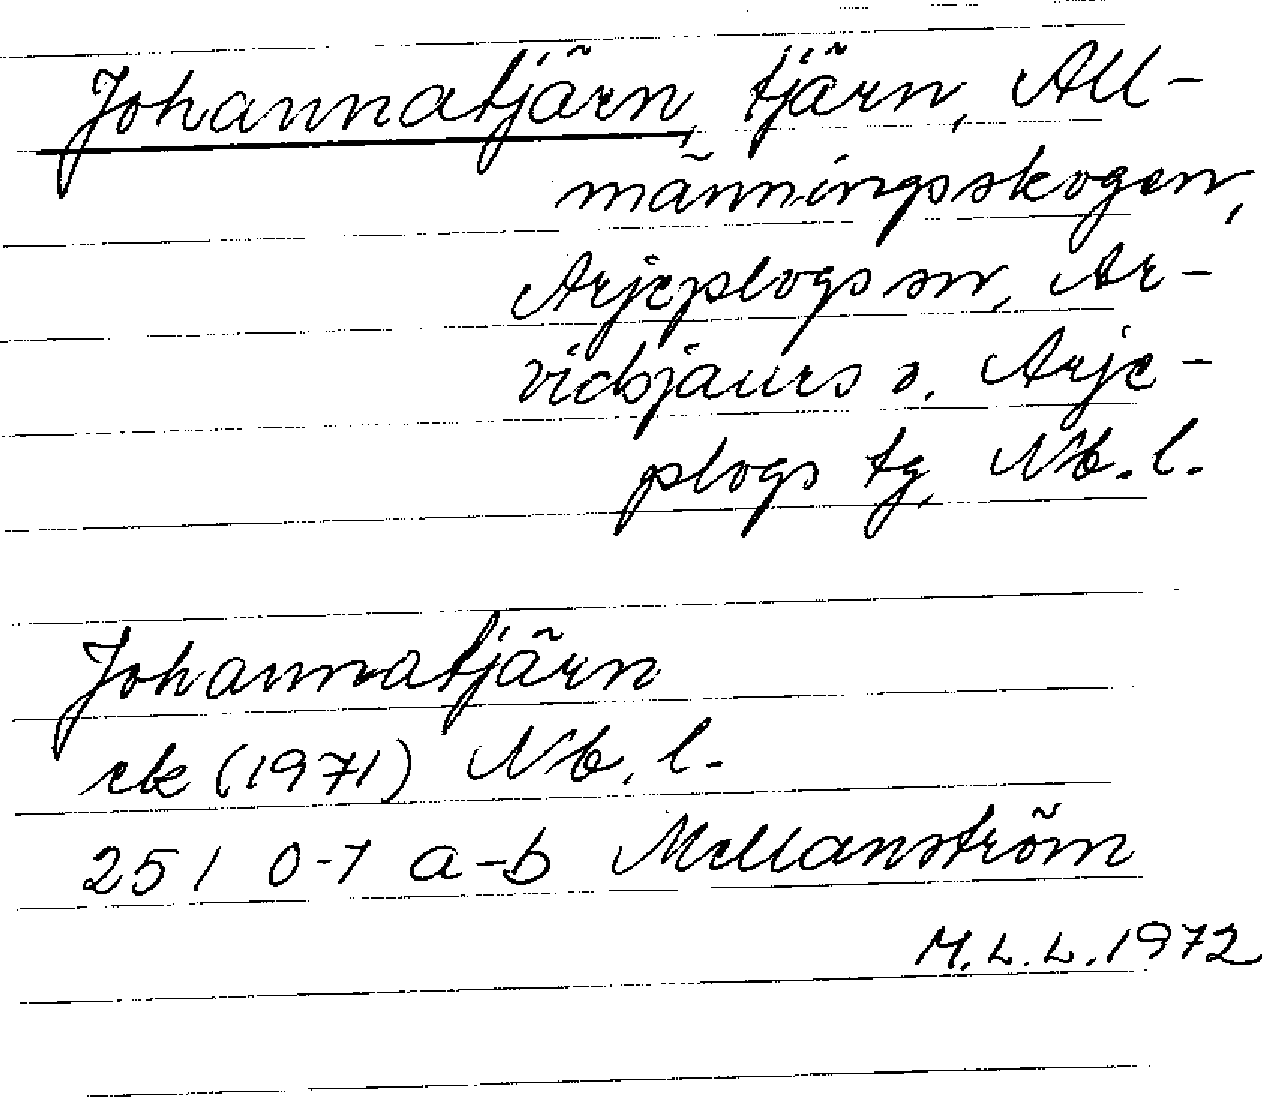 Johannatjärn, tjärn, All-
männingsskogen,
Arjeplogs sn, Ar-
vidsjaurs o. Arje-
plogs tg, Nb. l.
Johannatjärn
ek (1971) Nb. l.
25 I 0-1 a-b Mellanström
M.L.L. 1972